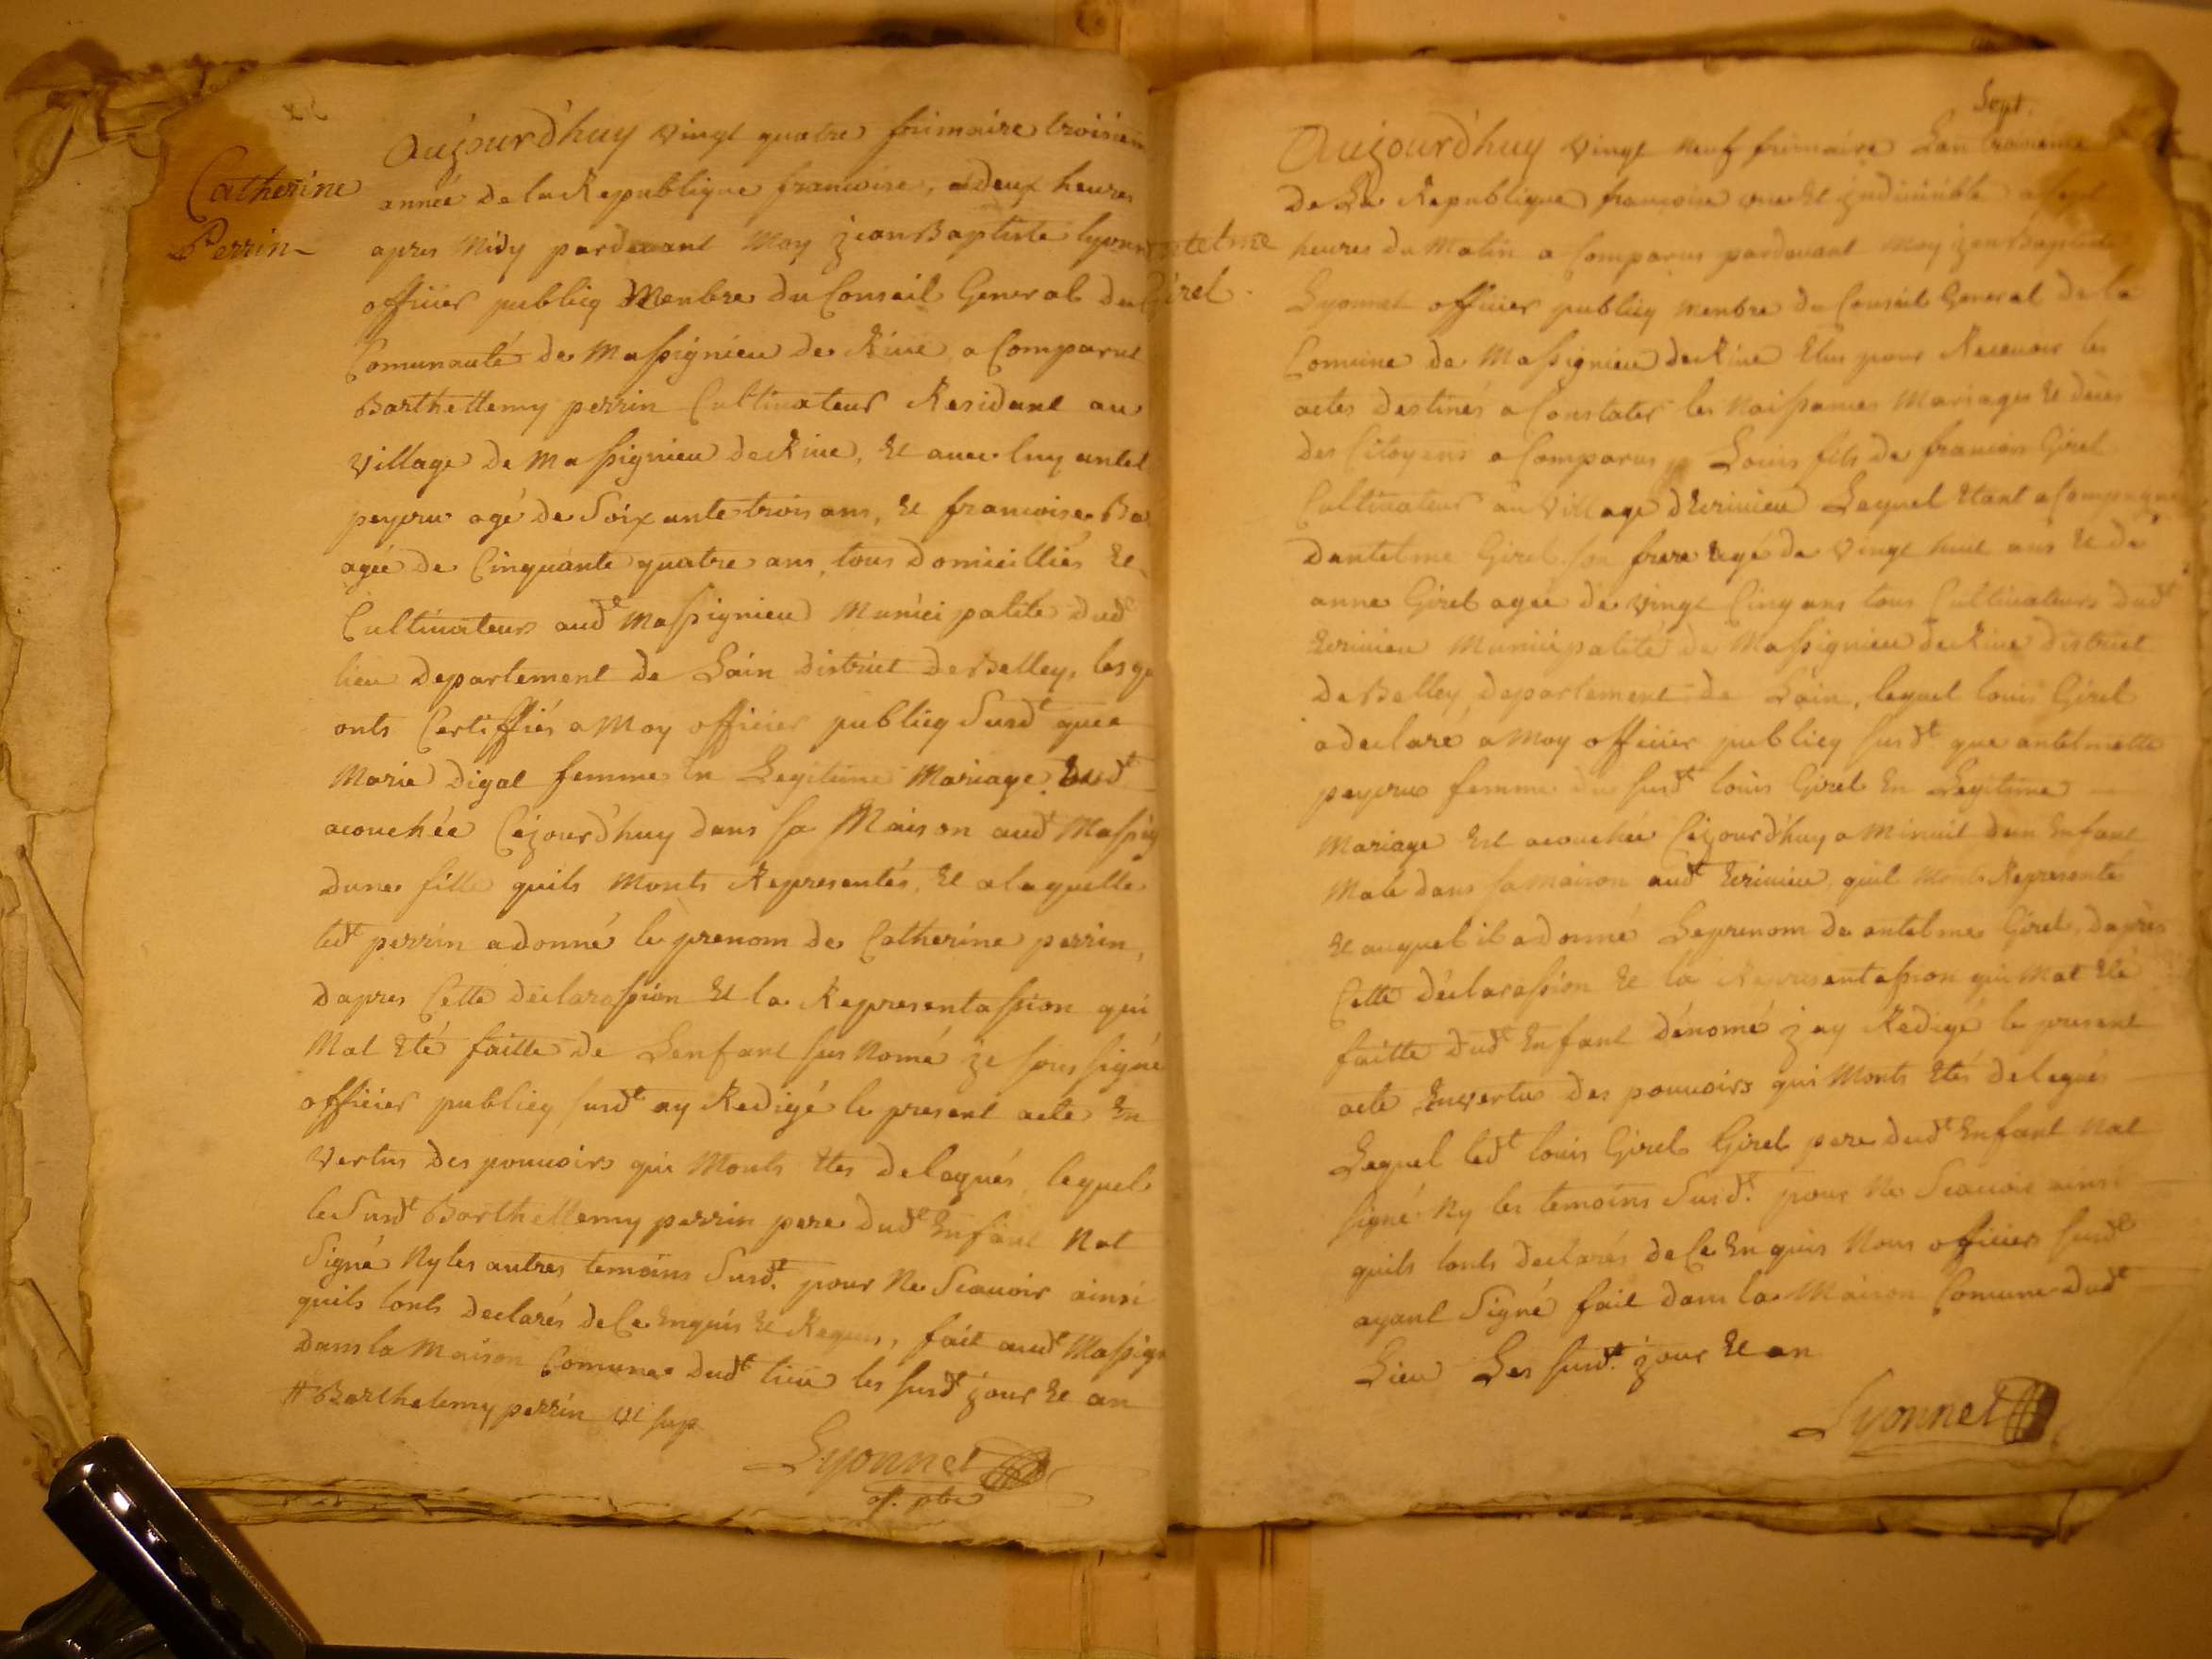 Catherine
Perrin
Aujourd'huy vingt quatre frimaire troisiem
année de la Republique francoise, a deux heures
apres Midy pardevant Moy jean Baptiste lyonn
officier publicq Menbre du Conseil General du
Comunauté de Massignieu de Rive, a Comparut
Barthellemy perrin Cultivateur Residant au
village de Massignieu de Rive, Et avec luy antel
peycru agé de Soixante trois ans, Et francoise Ba
agée de Cinquante quatre ans, tous domicilliés Et
Cultivateurs audt Massignieu Municipalité dudt
lieu departement de Lain district de Belley, lesq
onts Certiffiés a Moy officier publicq Susdt que
Marie digal femme En Legitime Mariage
acouchée Cejourd'huy dans sa Maison audt Massig
dune fille quils Monts Representés, Et a laquelle
ledt perrin a donné le prenom de Catherine perrin,
dapres Cette declarassion Et la Representassion qui
Mat Eté faitte de Lenfant sus Nomé je sous signé
officier publicq susdt ay Redigé le present acte En
vertus des pouvoirs qui Monts Etes delegués, lequel
le Susdt Barthellemy perrin pere dudt Enfant Nat
Signé Ny les autres temoins Susdt pour Ne Scavoir ainsi
quils lonts declarés de Ce Enquis Et Requis, fait audt Massign
dans la Maison Comune dudt lieu les susdt jour Et an
# Barthelemy perrin vt sup
Lyonnet
of. pbc
Sept.
antelme
Girel
Aujourd'huy vingt Neuf frimaire Lan troisieme
de La Republique francoise une Et jndivisible a sept
heures du Matin a Comparus pardevant Moy jean Baptiste
Lyonnet officier publicq Menbre du Conseil General de la
Comune de Massignieu de Rive Elus pour Recevoir les
actes destinés a Constater les Naissances Mariages Et deces
des Citoyens a Comparus Louis fils de francois Girel
Cultivateur au village dEcrivieu Lequel Etant a Compagné
dantelme Girel son frere agé de vingt huit ans Et de
anne Girel agée de vingt Cinq ans tous Cultivateurs dudt
Ecrivieu Municipalité de Massignieu de Rive district
de Belley, departement de Lain, lequel louis Girel
a declaré a Moy officier publicq susdt que antelmette
peycru femme du susdt louis Girel En Legitime
Mariage Est acouchée Cejourd'huy a Minuit dun Enfant
Male dans sa Maison audt Ecrivieu, quil Monts Representés
Et auquel il a donné Le prenom de antelme Girel, dapres
Cette déclarassion Et la Representassion qui Mat Eté
faitte dudt Enfant dénomé jay Redigé le present
acte En vertus des pouvoirs qui Monts Etés delegués
Lequel ledt louis Girel Girel pere dudt Enfant Nat
signé Ny les temoins Susdt. pour Ne Scavoir ainsi
quils lonts declarés de Ce Enquis Nous officier susdt
ayant Signé fait dans la Maison Comune dudt
Lieu Les susdt. jour Et an
Lyonnet